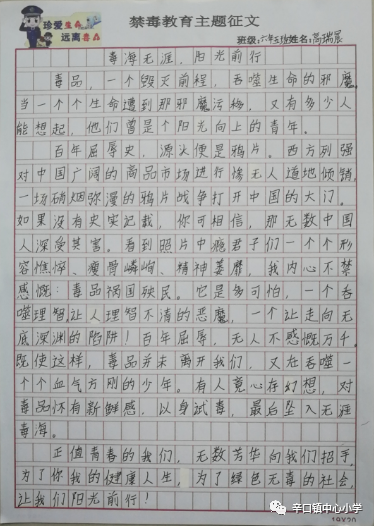 珍爱生命
远离毒品
禁毒教育主题征文
班级:六年五班姓名:高瑞晨
毒海无涯,阳光前行
毒品,一个毁灭前程,吞噬生命的邪魔。
当一个个生命遭到那邪魔污秽,又有多少人
能想起,他们曾是个阳光向上的青年。
百年屈辱史,源头便是鸦片。西方列强
对中国广阔的商品市场进行惨无人道地倾销,
一场硝烟弥漫的鸦片战争打开中国的大门。
如果没有史实记载,你可相信,那无数中国
人深受其害。看到照片中瘾君子们一个个形
容憔悴、瘦骨嶙峋、精神萎靡,我内心不禁
感慨:毒品祸国殃民。它是多可怕,一个吞
噬理智让人理智不清的恶魔,一个让走向无
底深渊的陷阱!百年屈辱,无人不感慨万千。
既使这样,毒品并未离开我们,又在吞噬一
个个血气方刚的少年。有人竟心存幻想,对
毒品怀有新鲜感,以身试毒,最后坠入无涯
毒海。
正值青春的我们,无数芳华向我们招手。
为了你我的健康人生,为了绿色无毒的社会,
让我们阳光前行!
辛口镇中心小学